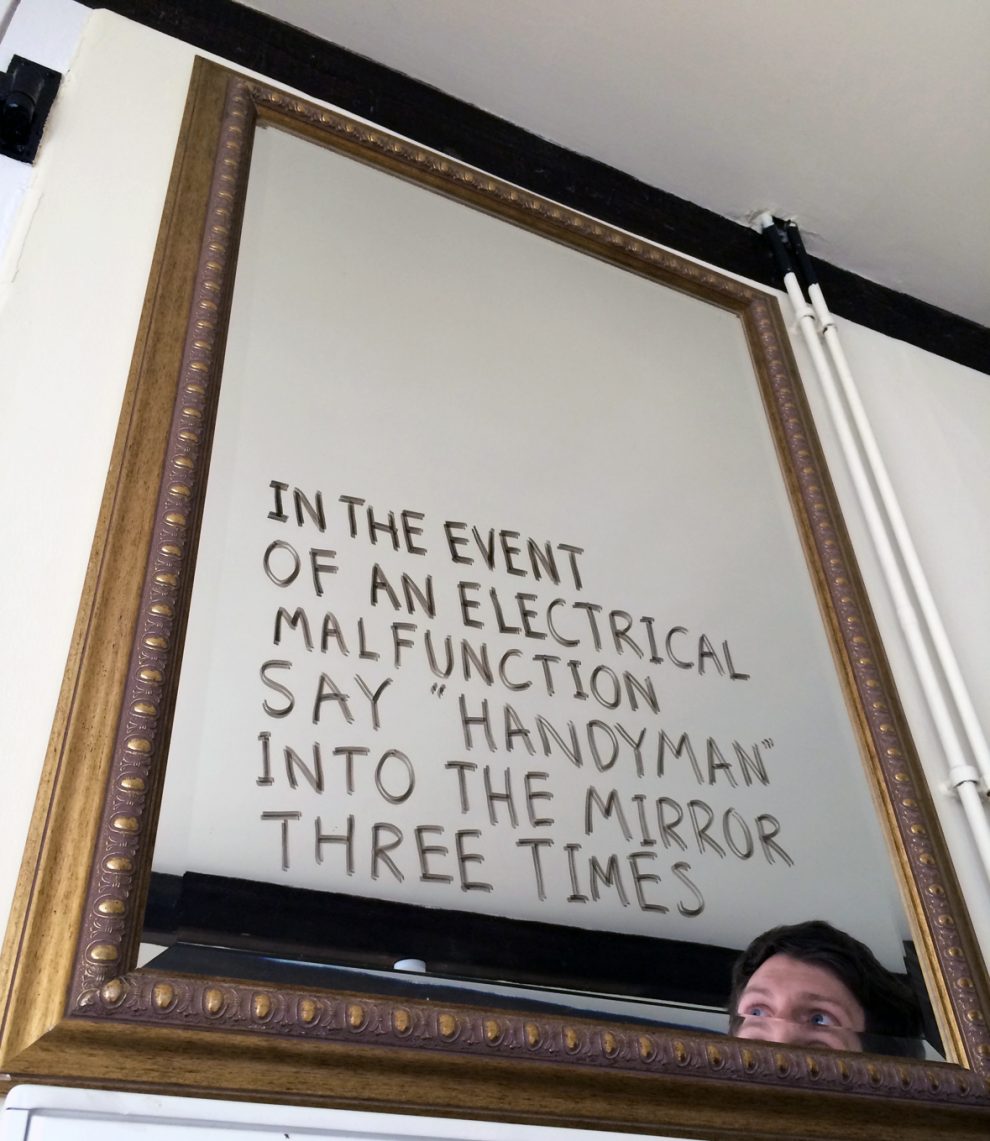 IN THE EVENT
OF AN ELECTRICAL
MALFUNCTION
SAY "HANDYMAN"
INTO THE MIRROR
THREE TIMES